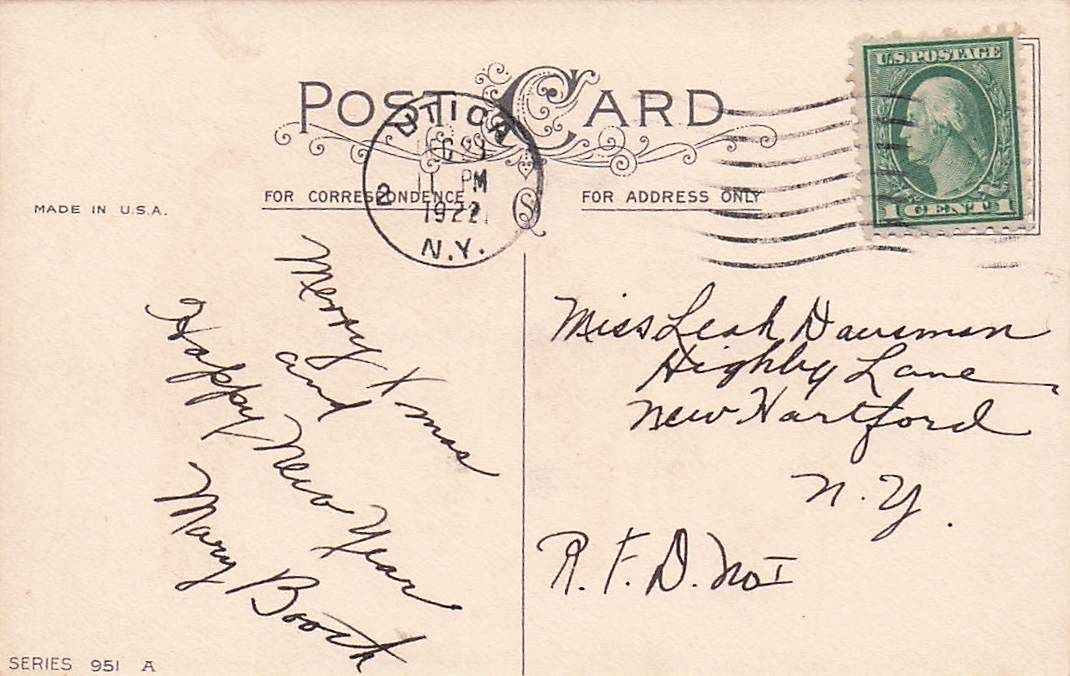 POST CARD
U.S. POSTAGE
1 CENT 1
UTICA
PM
1922
N.Y.
2
FOR CORRESPONDENCE
FOR ADDRESS ONLY
MADE IN U.S.A.
Merry Xmas
and
Happy New Year
Mary Booth
Miss Leah
Highby Lane
New Hartford
N.Y.
R.F.D. No I
SERIES 951 A